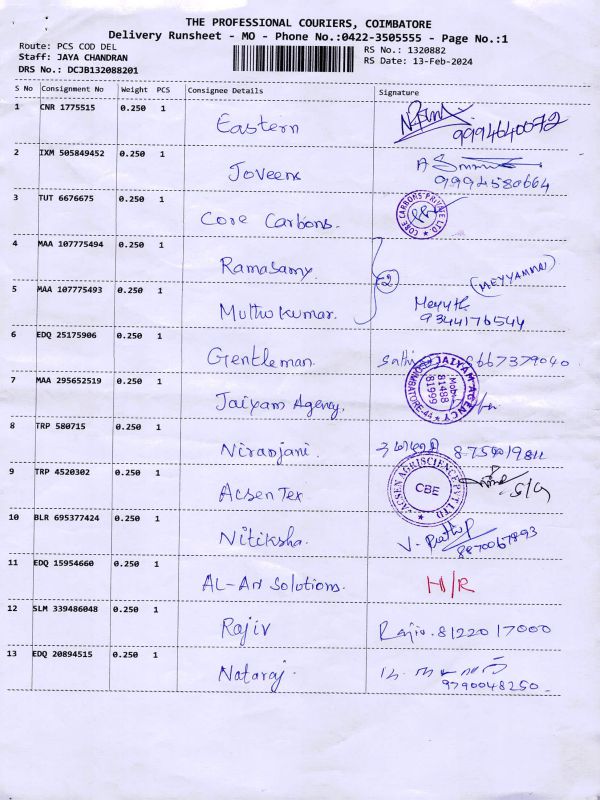 THE PROFESSIONAL COURIERS, COIMBATORE
Delivery Runsheet - MO - Phone No.:0422-3505555 - Page No.:1
Route: PCS COD DEL
RS No.: 1320882
Staff: JAYA CHANDRAN
RS Date: 13-Feb-2024
DRS No.: DCJB132088201
S No Consignment No Weight PCS Consignee Details Signature
1 CNR 1775515 0.250 1 Eastern
9994640072
2 IXM 505849452 0.250 1 Joveens
9994580664
3 TUT 6676675 0.250 1 Core Carbons. CORE CARBONS PRIVATE LTD.
4 MAA 107775494 0.250 1 Ramasamy. 2 (MEYYAMMAI)
5 MAA 107775493 0.250 1 Muthukumar.
9344176544
6 EDQ 25175906 0.250 1 Gentleman. Sathi 9667379040
7 MAA 295652519 0.250 1 Jaiyam Agency. JAIYAM AGENCY COIMBATORE Mobile 81488 81999
8 TRP 580715 0.250 1 Niranjani.
9 TRP 4520302 0.250 1 Acsen Tex ACSEN AGRISCIENCE PVT LTD CBE
10 BLR 695377424 0.250 1 Nitiksha. V. Prathip
8870067893
11 EDQ 15954660 0.250 1 AL-Art Solutions. H/R
12 SLM 339486048 0.250 1 Rajiv Rajiv. 81220 17000
13 EDQ 20894515 0.250 1 Nataraj.
9790048250